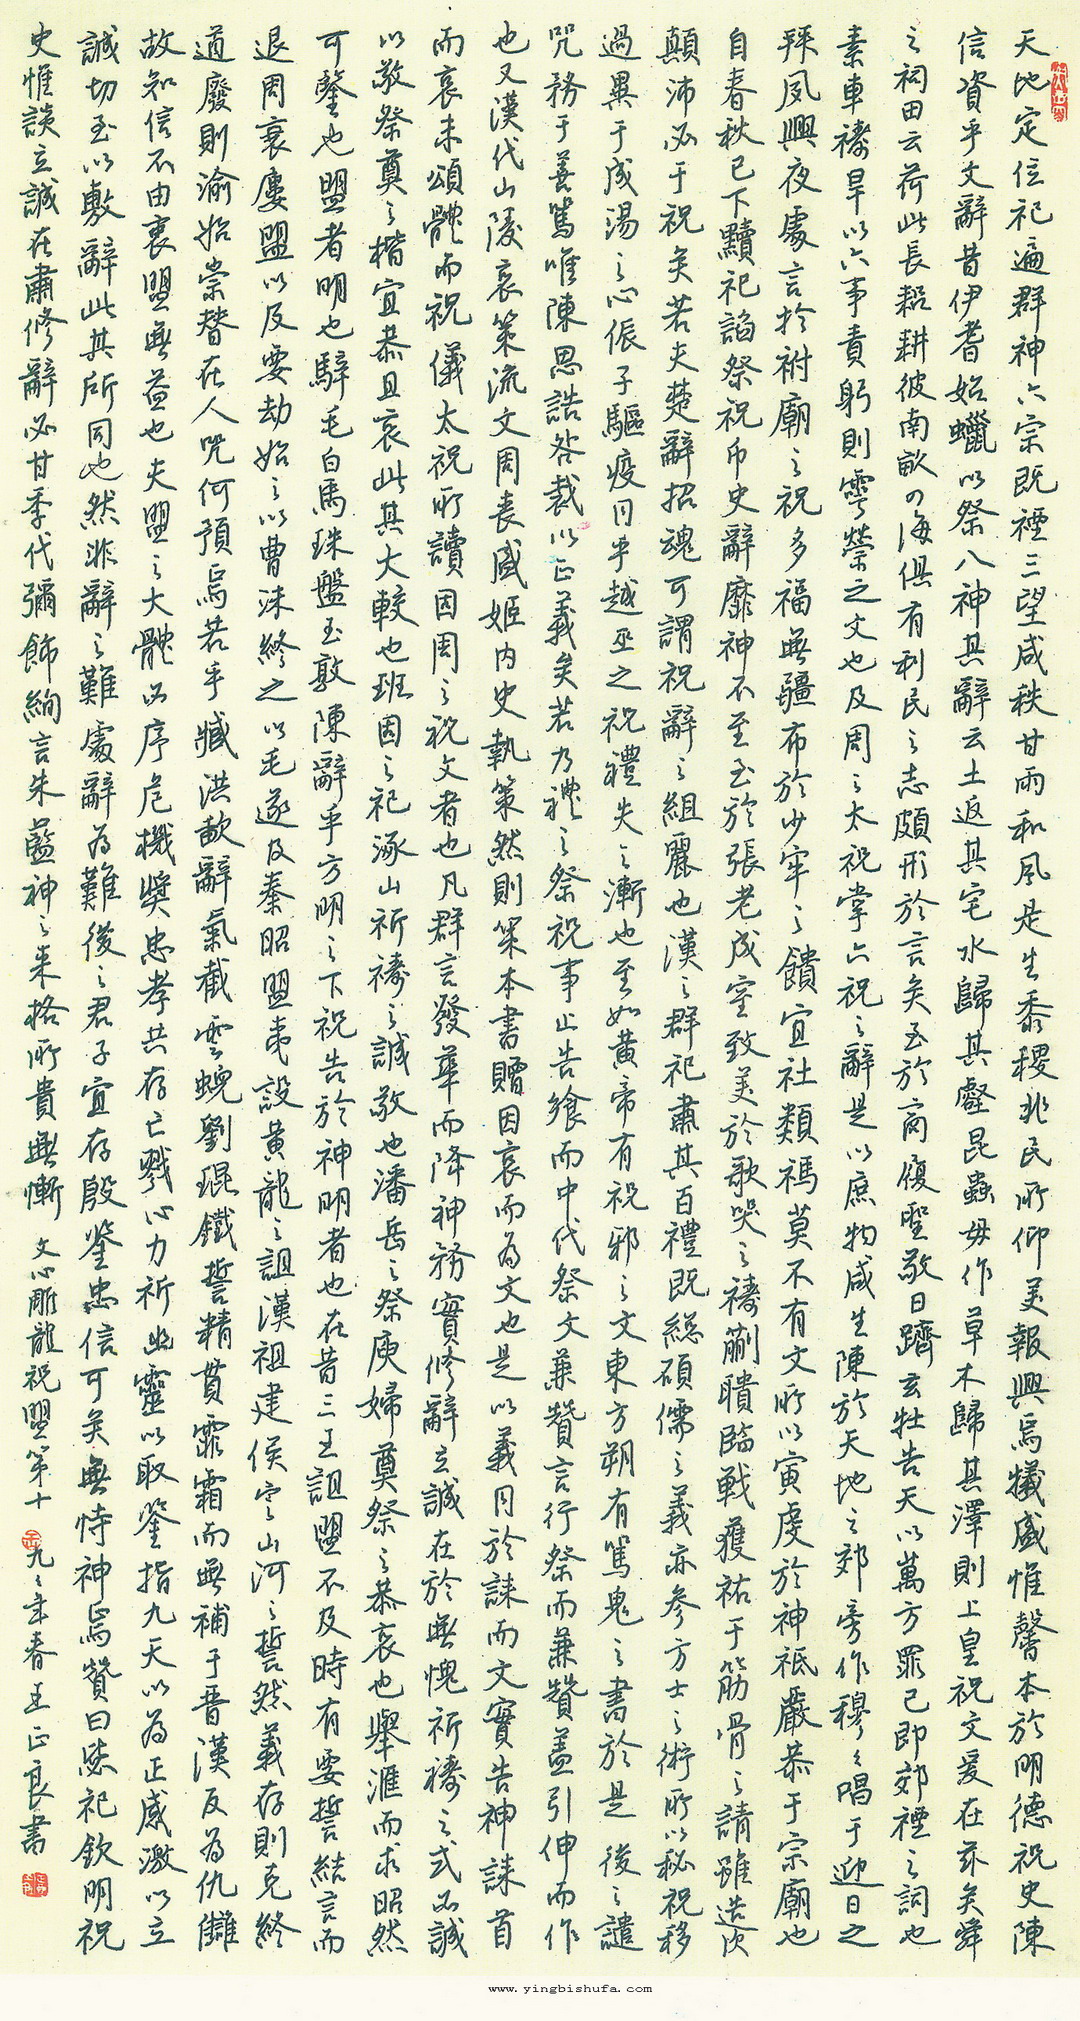 天地定位祀遍群神六宗既禋三望咸秩甘雨和風是生黍稷兆民所仰美報興焉犧盛惟馨本於明德祝史陳
信資乎文辭昔伊耆始蠟以祭八神其辭云土返其宅水歸其壑昆蟲毋作草木歸其澤則上皇祝文爰在茲矣舜
之祠田云荷此長耜耕彼南畝四海俱有利民之志頗形於言矣至於商履聖敬日躋玄牡告天以萬方罪己即郊禋之詞也
素車禱旱以六事責躬則雩禜之文也及周之太祝掌六祝之辭是以庶物咸生陳於天地之郊旁作穆々唱于迎日之
拜夙興夜處言於祔廟之祝多福無疆布於少牢之饋宜社類禡莫不有文所以寅虔於神祇嚴恭于宗廟也
自春秋已下黷祀諂祭祝币史辭靡神不至至於張老成室致美於歌哭之禱蒯聵臨戰獲祐于筋骨之請雖造次
顛沛必于祝矣若夫楚辭招魂可謂祝辭之組麗也漢之群祀肅其百禮既總碩儒之義亦參方士之術所以秘祝移
過異于成湯之心侲子驅疫同乎越巫之祝禮失之漸也至如黃帝有祝邪之文東方朔有罵鬼之書於是後之譴
咒務于善罵唯陳思誥咎裁以正義矣若乃禮之祭祝事止告饗而中代祭文兼贊言行祭而兼贊蓋引伸而作
也又漢代山陵哀策流文周喪盛姬内史執策然則策本書贈因哀而為文也是以義同於誄而文實告神誄首
而哀末頌體而祝儀太祝所讀因周之祝文者也凡群言發華而降神務實修辭立誠在於無愧祈禱之式必誠
以敬祭奠之楷宜恭且哀此其大較也班固之祀涿山祈禱之誠敬也潘岳之祭庾婦奠祭之恭哀也舉滙而求昭然
可鑒也盟者明也騂毛白馬珠盤玉敦陳辭乎方明之下祝告於神明者也在昔三王詛盟不及時有要誓結言而
退周衰屢盟以及要劫始之以曹沫終之以毛遂及秦昭盟夷設黃龍之詛漢祖建侯定山河之誓然義存則克終
道廢則渝始崇替在人咒何預焉若乎臧洪歃辭氣截雲蜺劉琨鐵誓精貫霏霜而無補于晉漢反為仇讎
故知信不由衷盟無益也夫盟之大體必序危機獎忠孝共存亡戮心力祈幽靈以取鑒指九天以為正感激以立
誠切至以敷辭此其所同也然非辭之難處辭為難後之君子宜存殷鑒忠信可矣無恃神焉贊曰毖祀欽明祝
史惟談立誠在肅修辭必甘季代彌飾絢言朱藍神之來格所貴無慚 文心雕龍祝盟第十 九二年春王正良書
www.yingbishufa.com